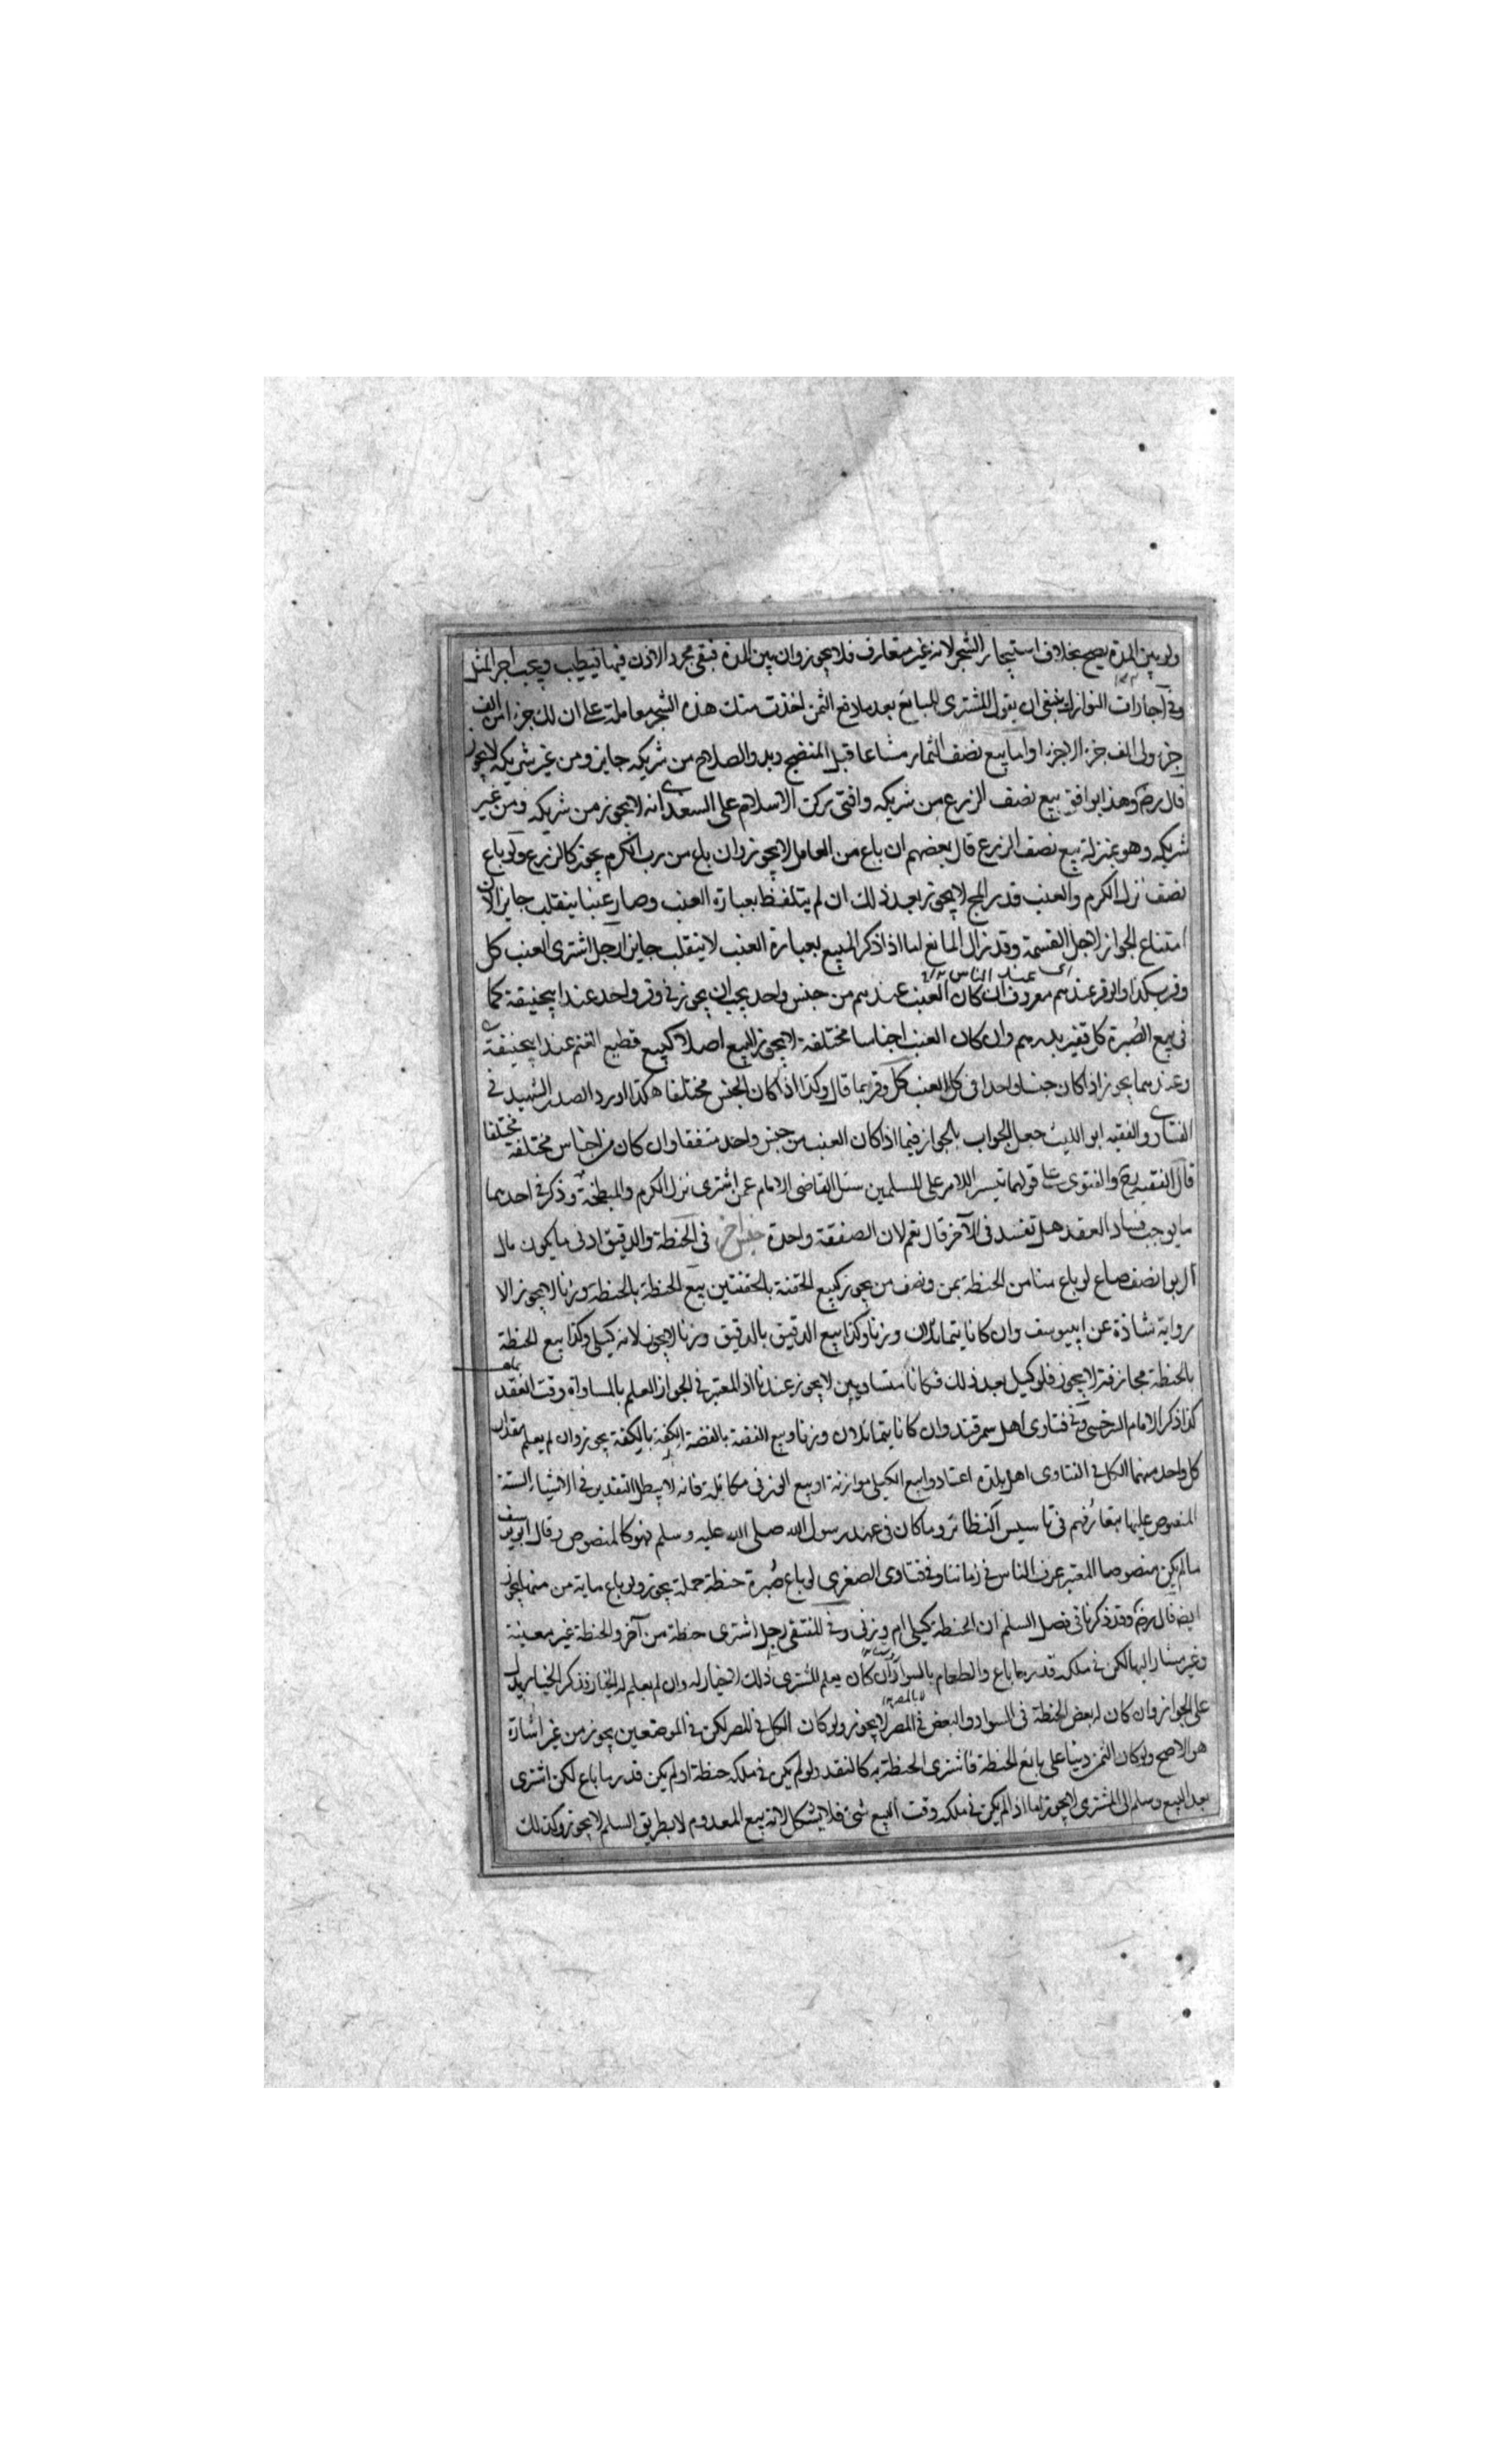 ولو بين المدة يصح بخلاف استيجار الشجر لانه غير متعارف فلا يجوز وان بين المدة فبقى مجرد الاذن فيها فيطيب ويجب اجر المثل
وفي اجارات النوازل ينبغي ان يقول المشترى للبايع بعد ما دفع الثمن اخذت منك هذه الشجر معاملة على ان لك جزءا من الف
جزء ولى الف جزء الا جزءا واما بيع نصف الثمار مشاعا قبل النضج وبدو الصلاح من شريكه جايز ومن غير شريكه لا يجوز
قال رضـ وهذا يوافق بيع نصف الزرع من شريكه وافتى ركن الاسلام على السغدى انه لا يجوز من شريكه ومن غير
شريكه وهو بمنزلة بيع نصف الزرع قال بعضهم ان باع من العامل لا يجوز وان باع من رب الكرم يجوز كالزرع ولو باع
نصف نزل الكرم والعنب قدر المج لا يجوز بعد ذلك ان لم يتلفظ بعبارة العنب وصار عنبا ينقلب جايزا لان
امتناع الجواز لاجل القسمة وقد زال المانع اما اذا ذكر المبيع بعبارة العنب لا ينقلب جايزا رجل اشترى العنب كل
وقر بكذا والوقر عندهم معروف ان كان العنب عندهم من جنس واحد يجب ان يجوز في وقر واحد عند ابيحنيفة كما
عند الناس
فى بيع الصبرة كل قفيز بدرهم وان كان العنب اجناسا مختلفة لا يجوز البيع اصلا كبيع قطيع الغنم عند ابيحنيفة
وعندهما يجوز اذا كان جنسا واحدا فى كل العنب كل وقر بما قال وكذا اذا كان الجنس مختلفا هكذا اورد الصدر الشهيد في
الفتاوى والفقيه ابو الليث جعل الجواب بالجواز فيما اذا كان العنب من جنس واحد متفقا وان كان من اجناس مختلفة مختلفا
قال الفقيه رح والفتوى على قولهما تيسيرا للامر على المسلمين سئل القاضى الامام عمن اشترى نزل الكرم والمبطخة وذكر في احدهما
ما يوجب فساد العقد هل تفسد فى الآخر قال نعم لان الصفقة واحدة جنس آخر فى الحنطة والدقيق ادنى ما يكون مال
الربوا نصف صاع لو باع منا من الحنطة بمن ونصف من يجوز كبيع الحفنة بالحفنتين بيع الحنطة بالحنطة وزنا لا يجوز الا
رواية شاذة عن ابييوسف وان كانا يتماثلان وزنا وكذا بيع الدقيق بالدقيق وزنا لا يجوز لانه كيلى وكذا بيع الحنطة
بالحنطة مجازفة لا يجوز فلو كيل بعد ذلك فكانا متساويين لا يجوز عندنا اذ المعتبر في الجواز العلم بالمساواة وقت العقد
كذا ذكر الامام السرخسى وفي فتاوى اهل سمرقند وان كانا يتماثلان وزنا وبيع الفضة بالفضة الكفة بالكفة يجوز وان لم يعلم مقدار
كل واحد منهما الكل في الفتاوى اهل بلدة اعتادوا بيع الكيلى موازنة او بيع الوزنى مكايلة فانه لا يبطل التقدير فى الاشياء الستة
المنصوص عليها بتعارفهم فى تاسيس النظائر وما كان فى عهد رسول الله صلى الله عليه وسلم فهو كالمنصوص وقال ابو يوسف
ما لم يكن منصوصا المعتبر عرف الناس في زماننا وفي فتاوى الصغرى لو باع صبرة حنطة جملة يجوز ولو باع ماية من منها يجوز
ايضا قال رضـ وقد ذكرنا فى فصل السلم ان الحنطة كيلى ام وزنى وفي المنتقى رجل اشترى حنطة من آخر والحنطة غير معينة
وغير مشار اليها لكن في ملكه قدر ما باع والطعام بالسواد ان كان يعلم المشترى ذلك لا خيار له وان لم يعلم له الخيار فذكر الخيار يدل
على الجواز وان كان له بعض الحنطة فى السواد والبعض في المصر لا يجوز ولو كان الكل في المصر لكن في الموضعين يجوز من غير اشارة
هو الاصح ولو كان الثمن دينا على بائع الحنطة فاشترى الحنطة به كالنقد ولو لم يكن في ملكه حنطة او لم يكن قدر ما باع لكن اشترى
بعد البيع وسلم الى المشترى لا يجوز اما اذا لم يكن في ملكه وقت البيع شئ فلا يشكل لانه بيع المعدوم لا بطريق السلم لا يجوز وكذلك